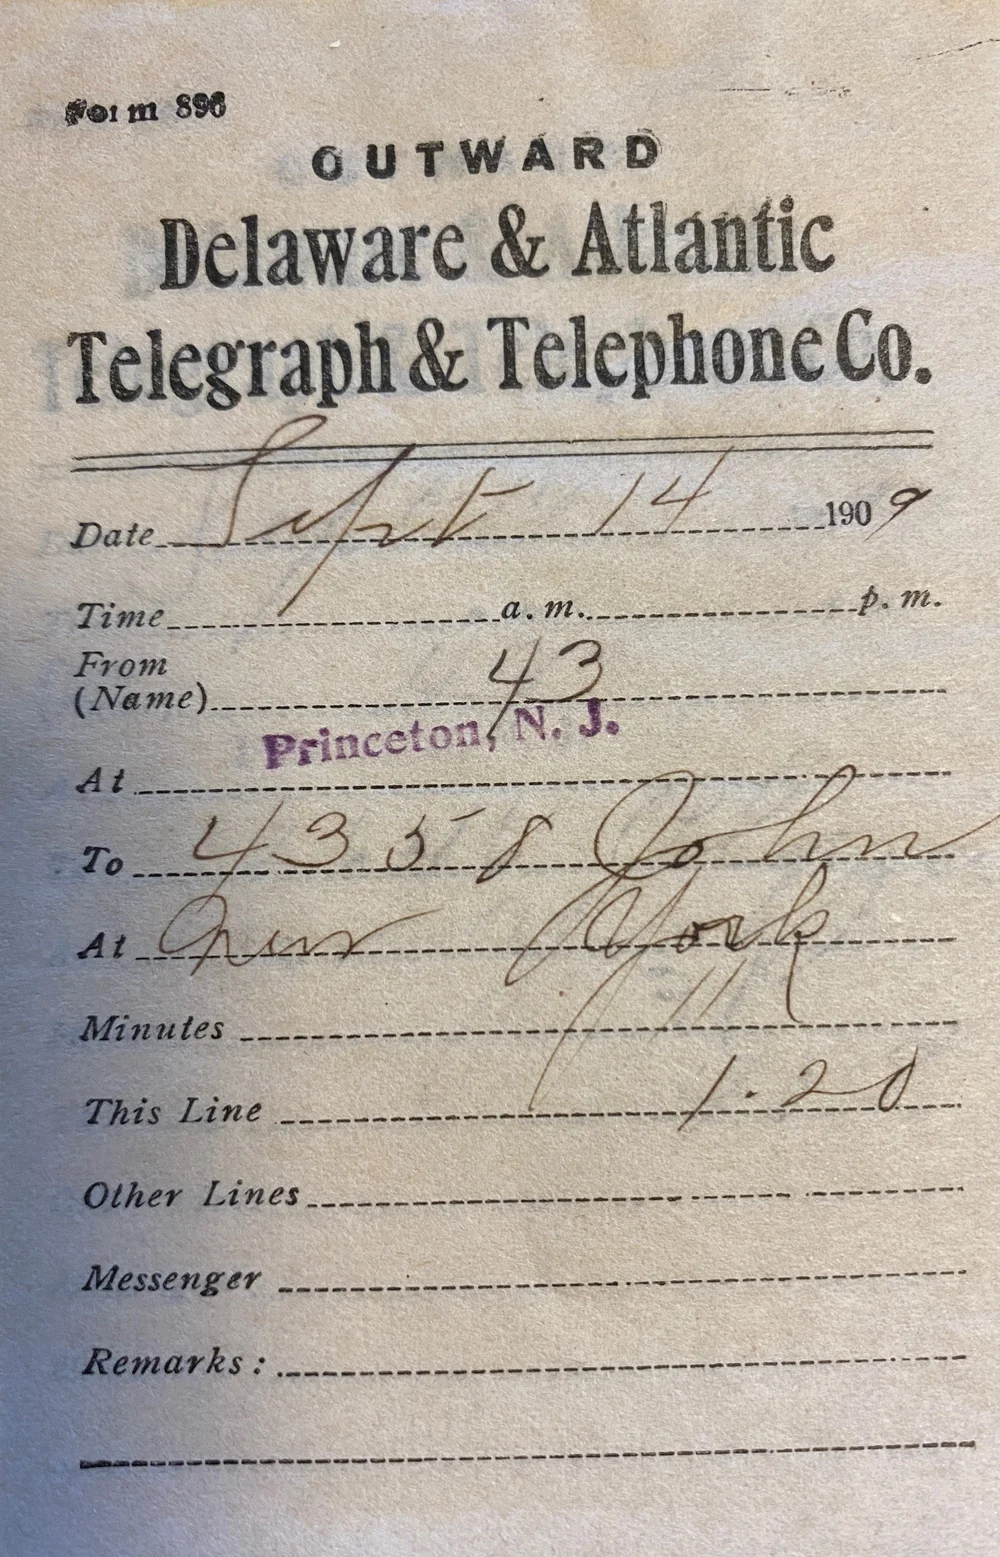 Form 896
OUTWARD
Delaware & Atlantic
Telegraph & Telephone Co.
Date Sept 14 1909
Time a. m. p. m.
From
(Name) 43
Princeton, N. J.
At
To 4358 John
At New York
Minutes 11
This Line 1.20
Other Lines
Messenger
Remarks: